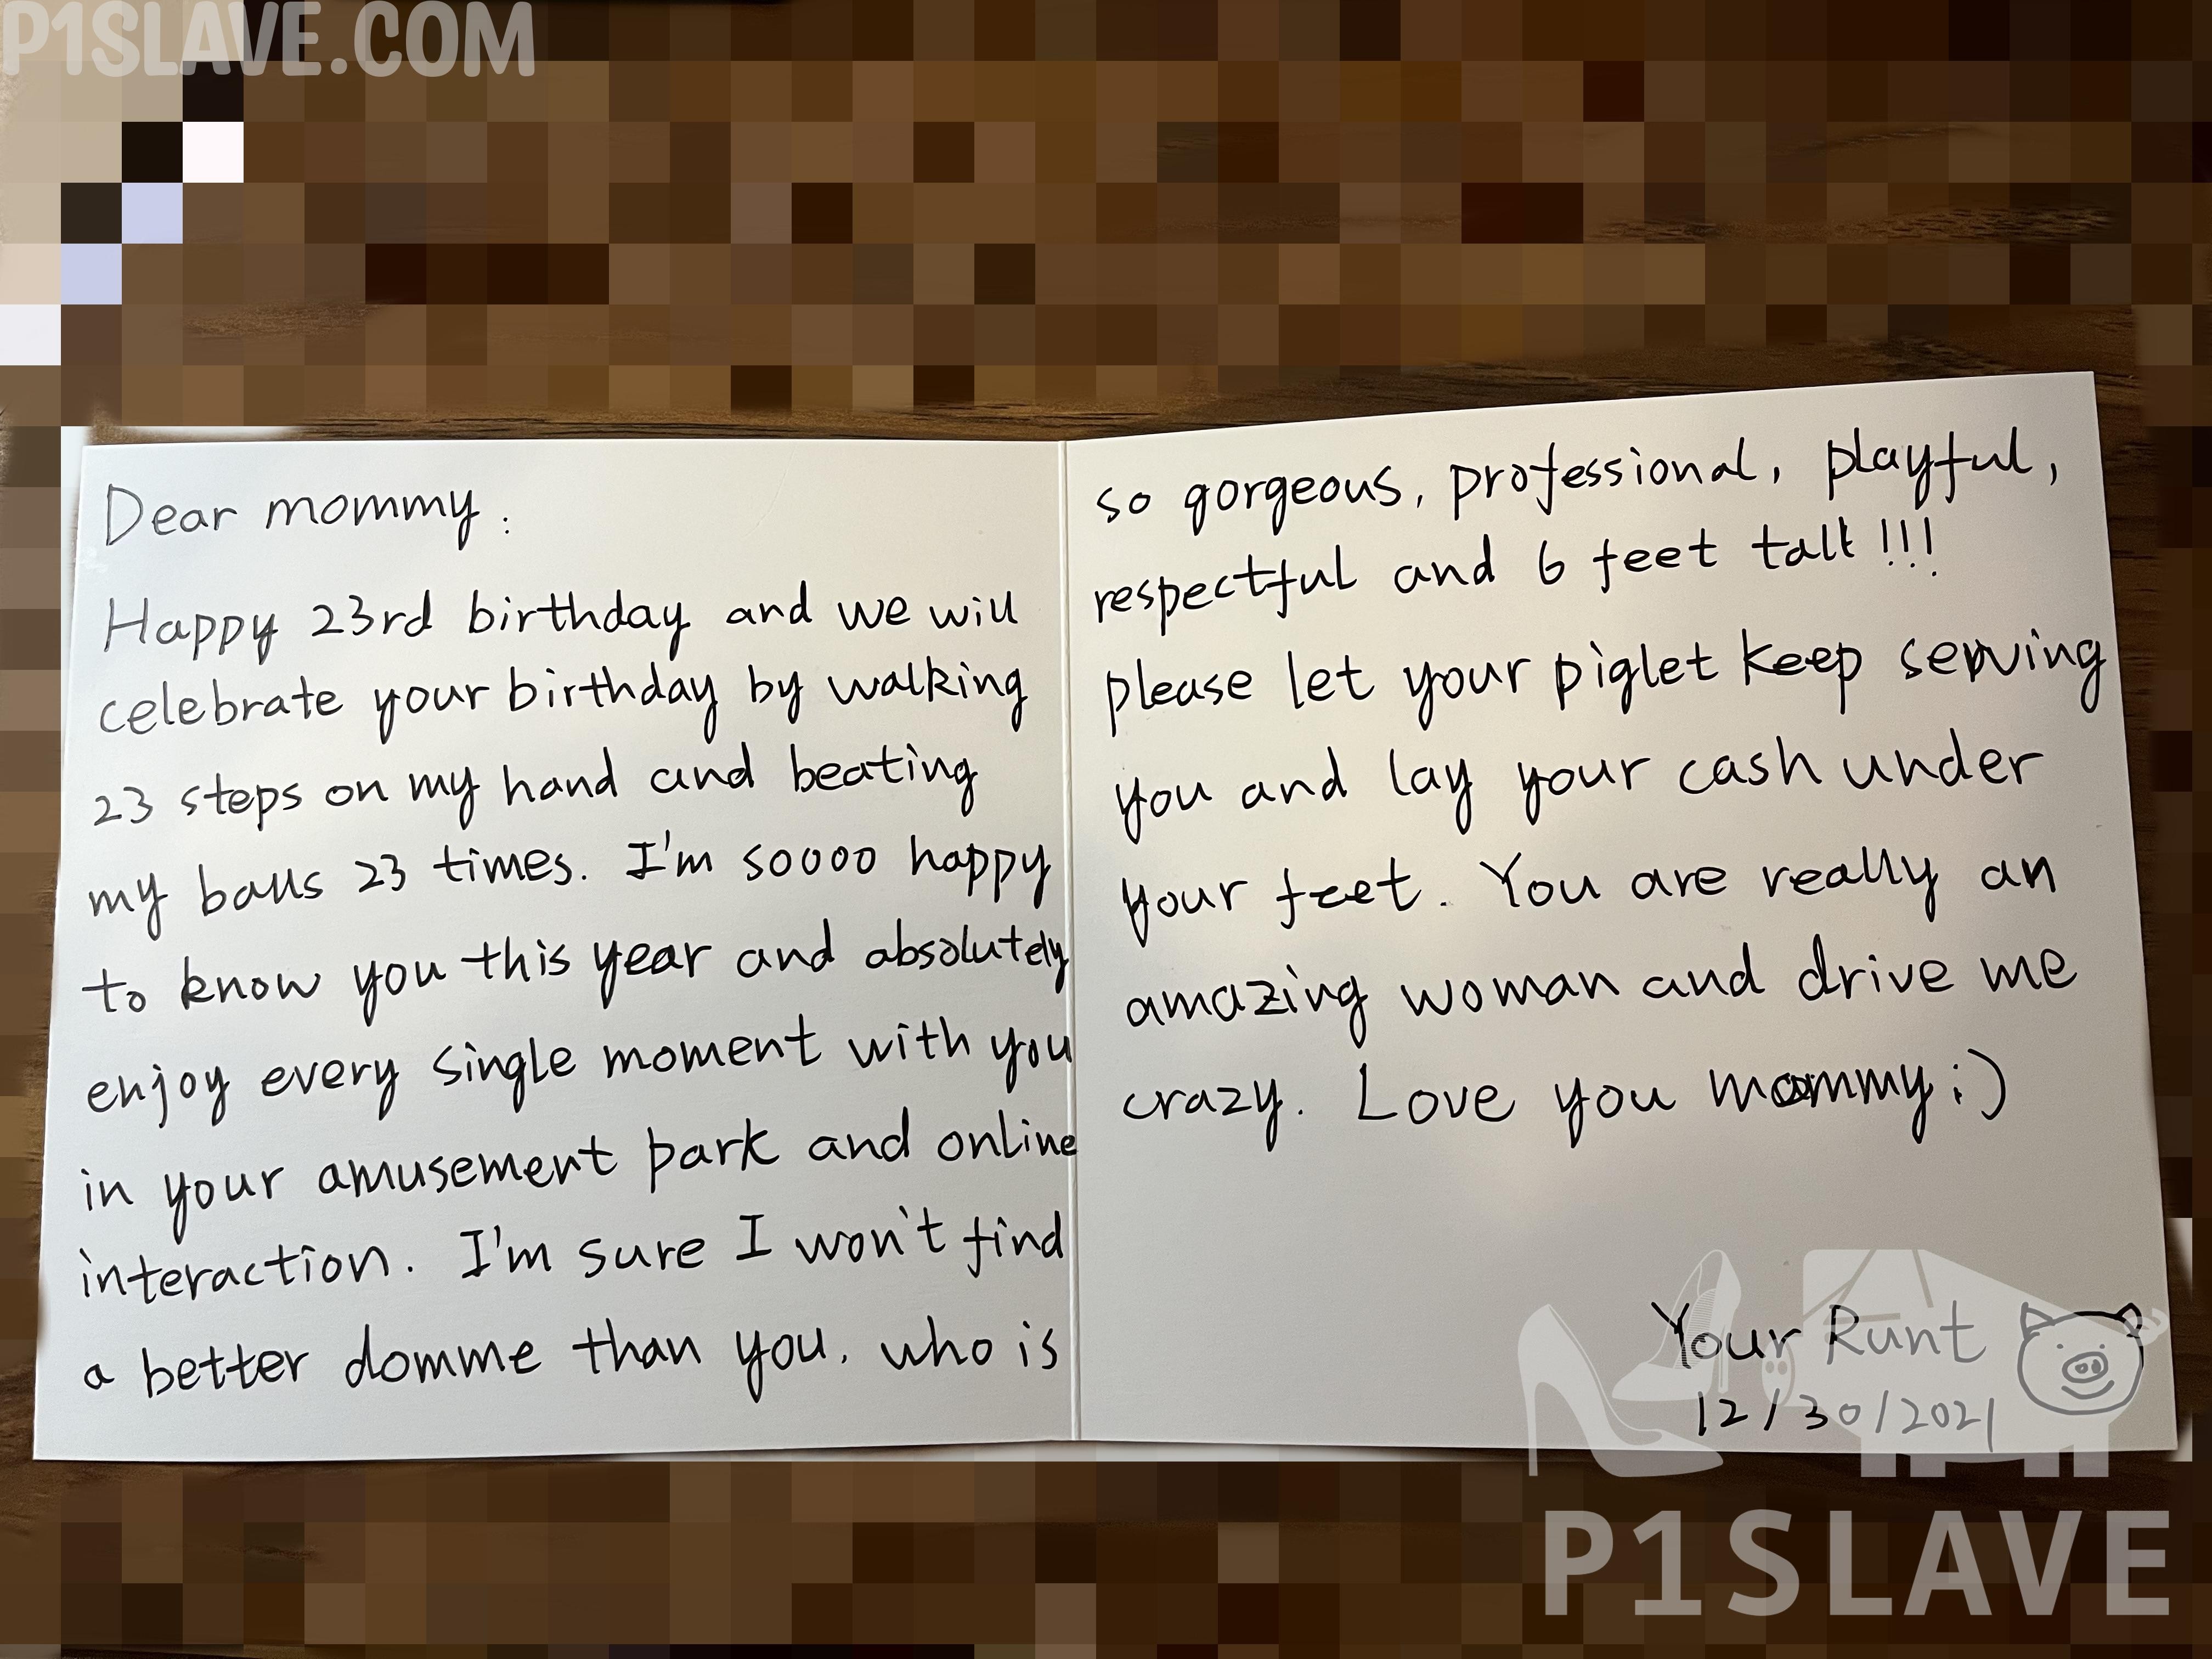 P1SLAVE.COM
Dear mommy:
Happy 23rd birthday and we will
celebrate your birthday by walking
23 steps on my hand and beating
my balls 23 times. I'm soooo happy
to know you this year and absolutely
enjoy every single moment with you
in your amusement park and online
interaction. I'm sure I won't find
a better domme than you, who is
so gorgeous, professional, playful,
respectful and 6 feet tall!!!
please let your piglet keep serving
you and lay your cash under
your feet. You are really an
amazing woman and drive me
crazy. Love you mommy:)
Your Runt
12/30/2021
P1SLAVE